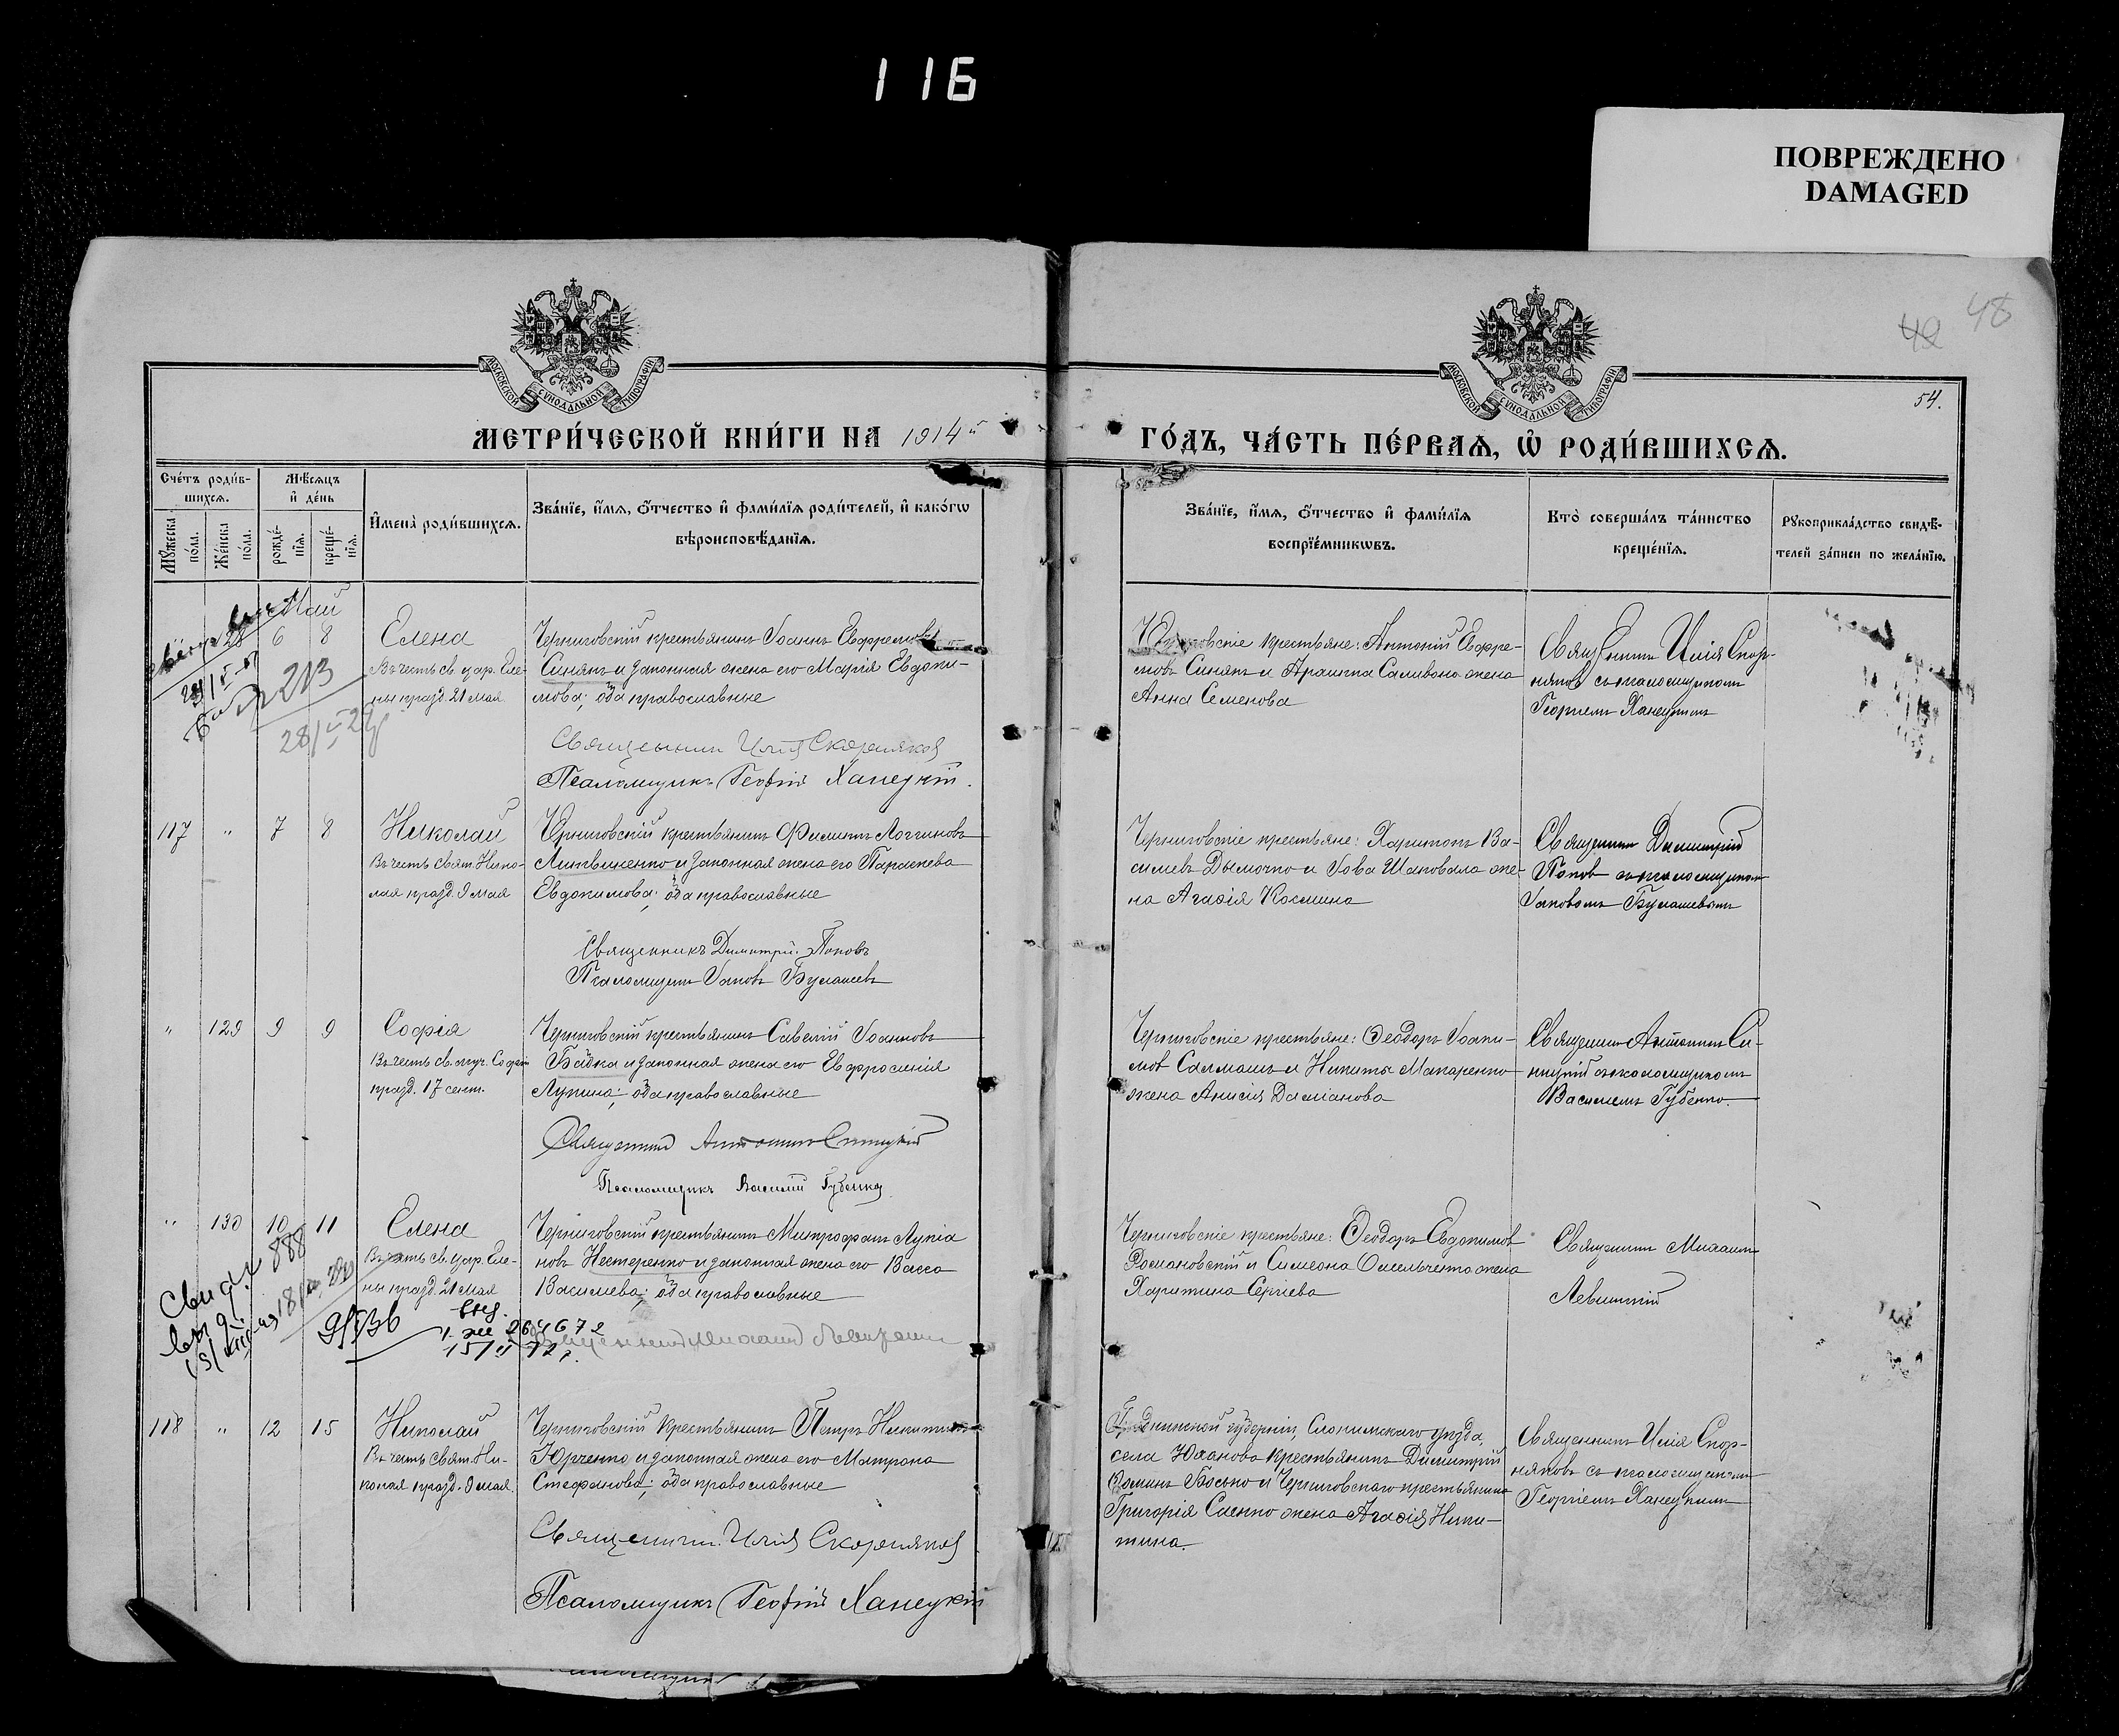 116
ПОВРЕЖДЕНО
DAMAGED
48
49
54.
МОСКОВСКОЙ СѴНОДАЛЬНОЙ ТИПОГРАФІИ
МОСКОВСКОЙ СѴНОДАЛЬНОЙ ТИПОГРАФІИ
МЕТРИ́ЧЕСКОЙ КНИ́ГИ НА 1914й
ГО́ДЪ, ЧА́СТЬ ПЕ́РВАѦ, Ѡ҆ РОДИ́ВШИХСѦ.
Сче́тъ роди́в-
шихся.
Мѣ́сяцъ
и҆ де́нь
Мꙋ́жеска
по́ла.
Же́нска
по́ла.
рожде́-
нїя.
креще́-
нїя.
И҆мена̀ роди́вшихся.
Зва́нїе, и҆́мя, ѻ҆́тчество и҆ фами́лїя роди́телей, и҆ како́гѡ
вѣроисповѣ́данїя.
Зва́нїе, и҆́мя, ѻ҆́тчество и҆ фами́лїя
воспрїе́мникѡвъ.
Кто̀ соверша́лъ та́инство
креще́нїя.
Рꙋкоприкла́дство свидѣ́-
телей за́писи по жела́нїю.
Май
6 8
Елена
Въ честь св. цар. Еле-
ны празд. 21 мая
213
Черниговскій крестьянинъ Іоаннъ Евфремовъ
Синякъ и законная жена его Марія Евдоки-
мова; оба православные
Священникъ Илія Скорняковъ
Псаломщикъ Георгій Ханецкій.
крестьяне: Антоній Евфре-
мовъ Синякъ и жена
Анна Семенова
Священникъ Илія Скор-
няковъ съ псаломщикомъ
Георгіемъ Ханецкимъ
117 " 7 8
Николай
Въ честь свят. Нико-
лая празд. 9 мая
Черниговскій крестьянинъ Филиппъ Логгиновъ
Литвиненко и законная жена его Параскева
Евдокимова; оба православные
Священникъ Димитрій Поповъ
Псаломщикъ Іаковъ Булашевъ
Черниговскіе крестьяне: Харитонъ Ва-
силіевъ Дымочко и Іова Шаповала же-
на Агаѳія Космина
Священникъ Димитрій
Поповъ съ псаломщикомъ
Іаковомъ Булашевымъ
" 129 9 9
Софія
Въ честь св. муч. Софіи
празд. 17 сент.
Черниговскій крестьянинъ Савелій Іоанновъ
Бабка и законная жена его Евфросинія
Лупина; оба православные
Священникъ Антонинъ Синицкій
Псаломщикъ Василій Губенко
Черниговскіе крестьяне: Ѳеодоръ Іоаки-
мовъ Салмашъ и Никиты Макаренко
жена Анисія Даміанова
Священникъ Антонинъ Си-
ницкій съ псаломщикомъ
Василіемъ Губенко.
" 130 10 11
Елена
Въ честь св. цар. Еле-
ны празд. 21 мая
888
264672
Черниговскій крестьянинъ Митрофанъ Лукіа
новъ Нестеренко и законная жена его Васса
Василіева; оба православные
Священникъ Михаилъ Левитскій
Черниговскіе крестьяне: Ѳеодоръ Евдокимовъ
Романовскій и Симеона Омельченко жена
Харитина Сергіева
Священникъ Михаилъ
Левитскій
118 " 12 15
Николай
Въ честь свят. Ни-
колая празд. 9 мая.
Черниговскій крестьянинъ Петръ Никитинъ
Юрченко и законная жена его Матрона
Стефанова; оба православные
Священникъ Илія Скорняковъ
Псаломщикъ Георгій Ханецкій
Гродненской губерніи, Слонимскаго уѣзда,
села крестьянинъ Димитрій
Босько и Черниговскаго крестьянина
Григорія жена Агаѳія Ники-
тина.
Священникъ Илія Скор-
няковъ съ псаломщикомъ
Георгіемъ Ханецкимъ